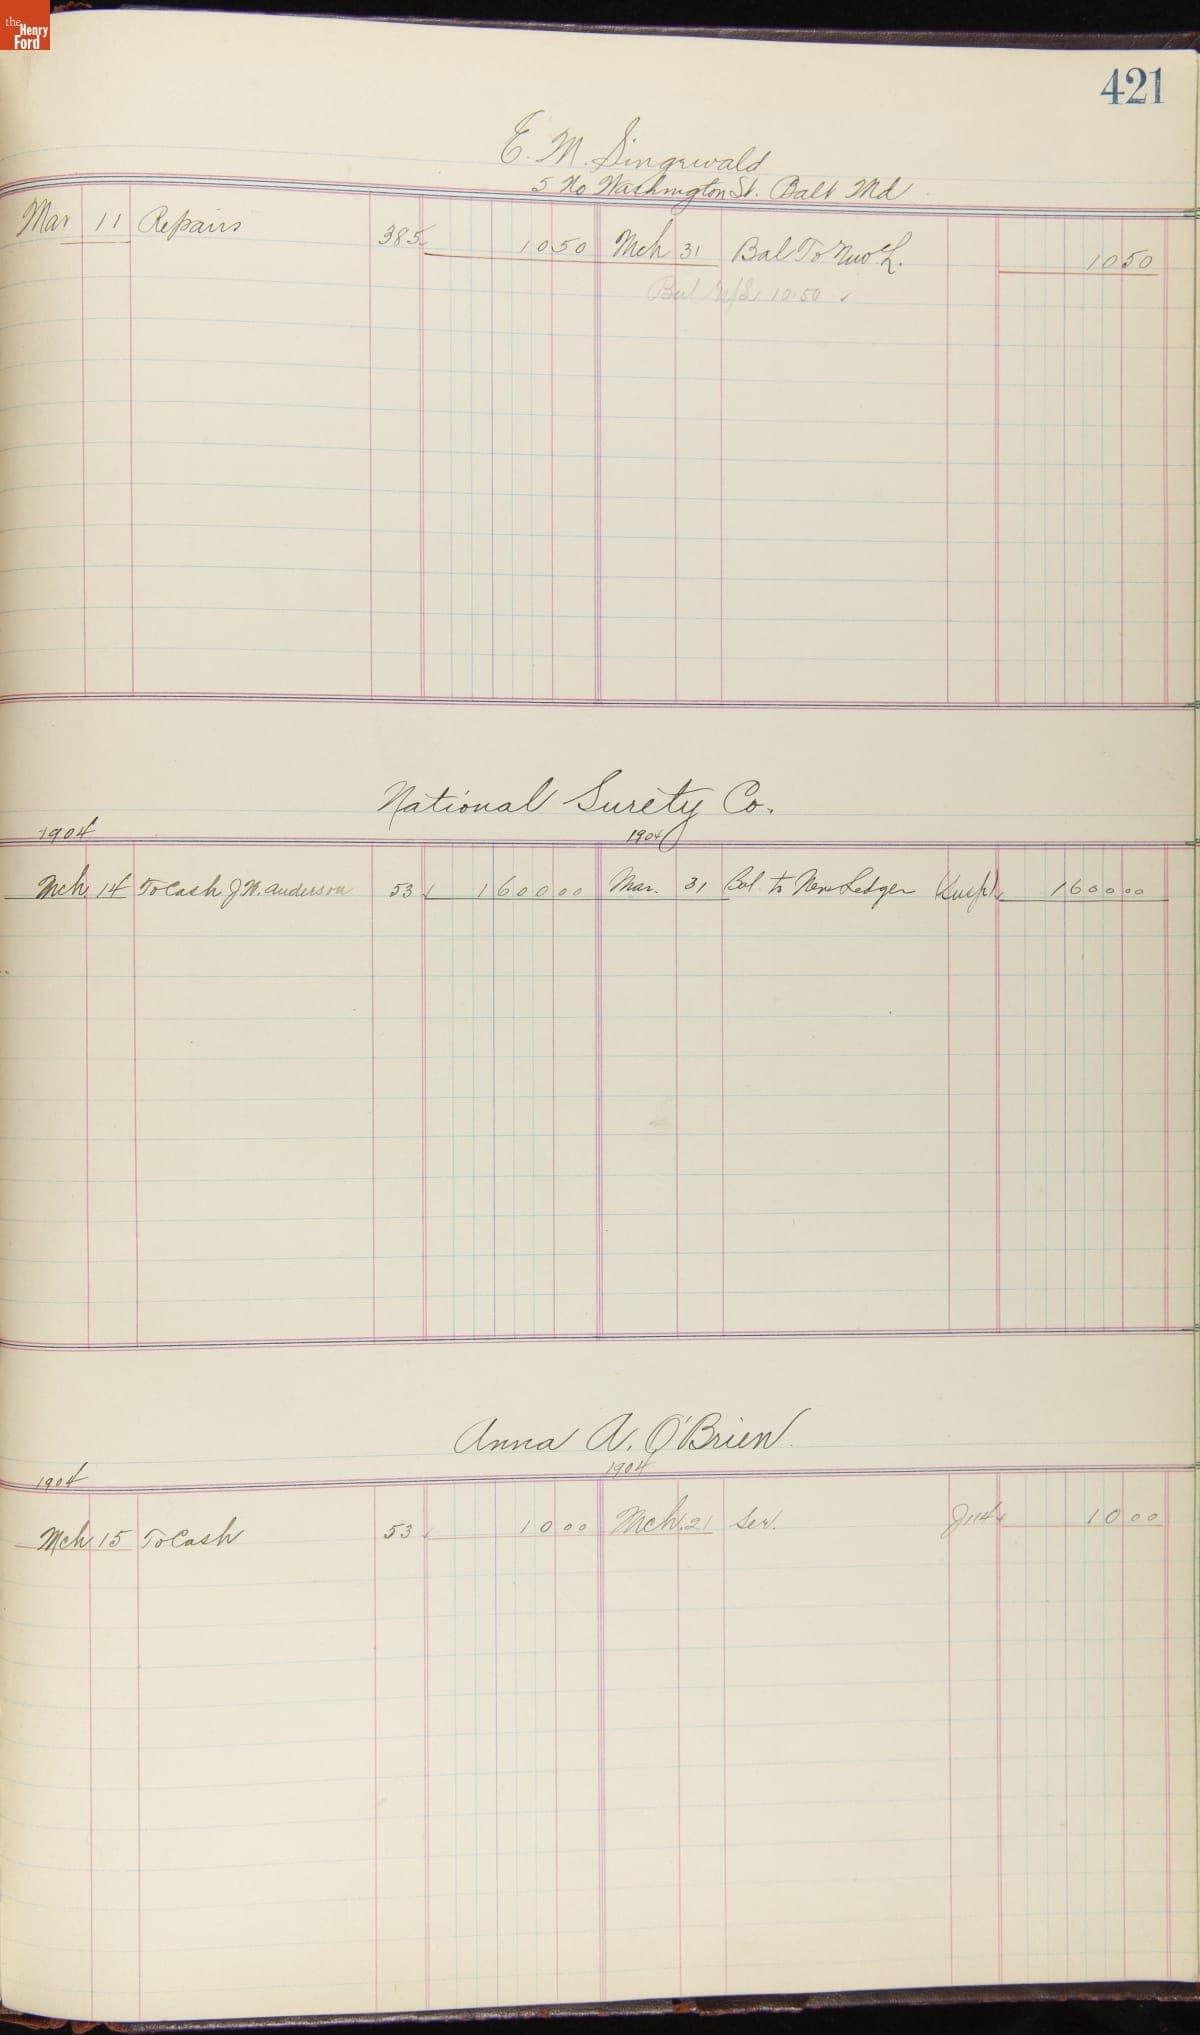 the
Henry
Ford
421
E. M. Singewald
5 No Washington St. Balt Md
Mar 11 Repairs 385 10 50 Mch 31 Bal To New L. 10 50
Bal 10.50 ✓
National Surety Co.
1904 1904
Mch 14 To Cash J. W. Anderson 53 1 600 00 Mar. 31 Bal to New Ledger 1 600 00
Anna A. O'Brien
1904 1904
Mch 15 To Cash 53 10 00 Mch 21 Ser. J114 10 00